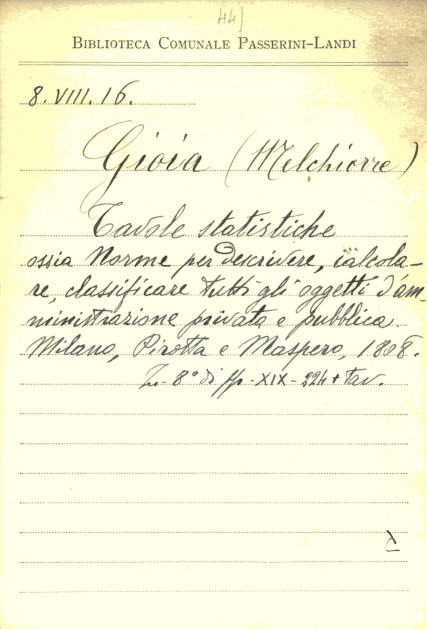 44]
BIBLIOTECA COMUNALE PASSERINI-LANDI
8. VIII. 16.
Gioia (Melchiorre)
Tavole statistiche
ossia Norme per descrivere, calcola-
re, classificare tutti gli oggetti d'am-
ministrazione privata e pubblica.
Milano, Pirotta e Maspero, 1808.
In-8° di pp. XIX-224 + tav.